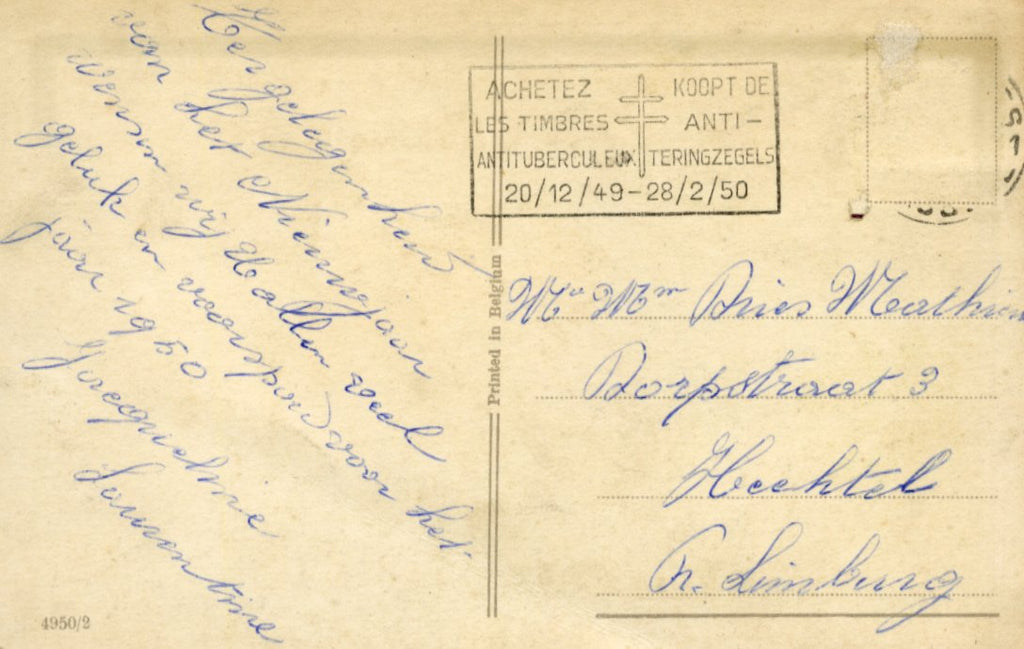 Ter gelegenheid
van het Nieuwjaar
wensen wij U allen veel
geluk en voorspoed voor het
jaar 1950
Jacqueline
Laurentine
4950/2
Printed in Belgium
ACHETEZ
LES TIMBRES
ANTITUBERCULEUX
KOOPT DE
ANTI-
TERINGZEGELS
20/12/49-28/2/50
Mr Mm Dries Mathieu
Dorpstraat 3
Hechtel
Pr. Limburg